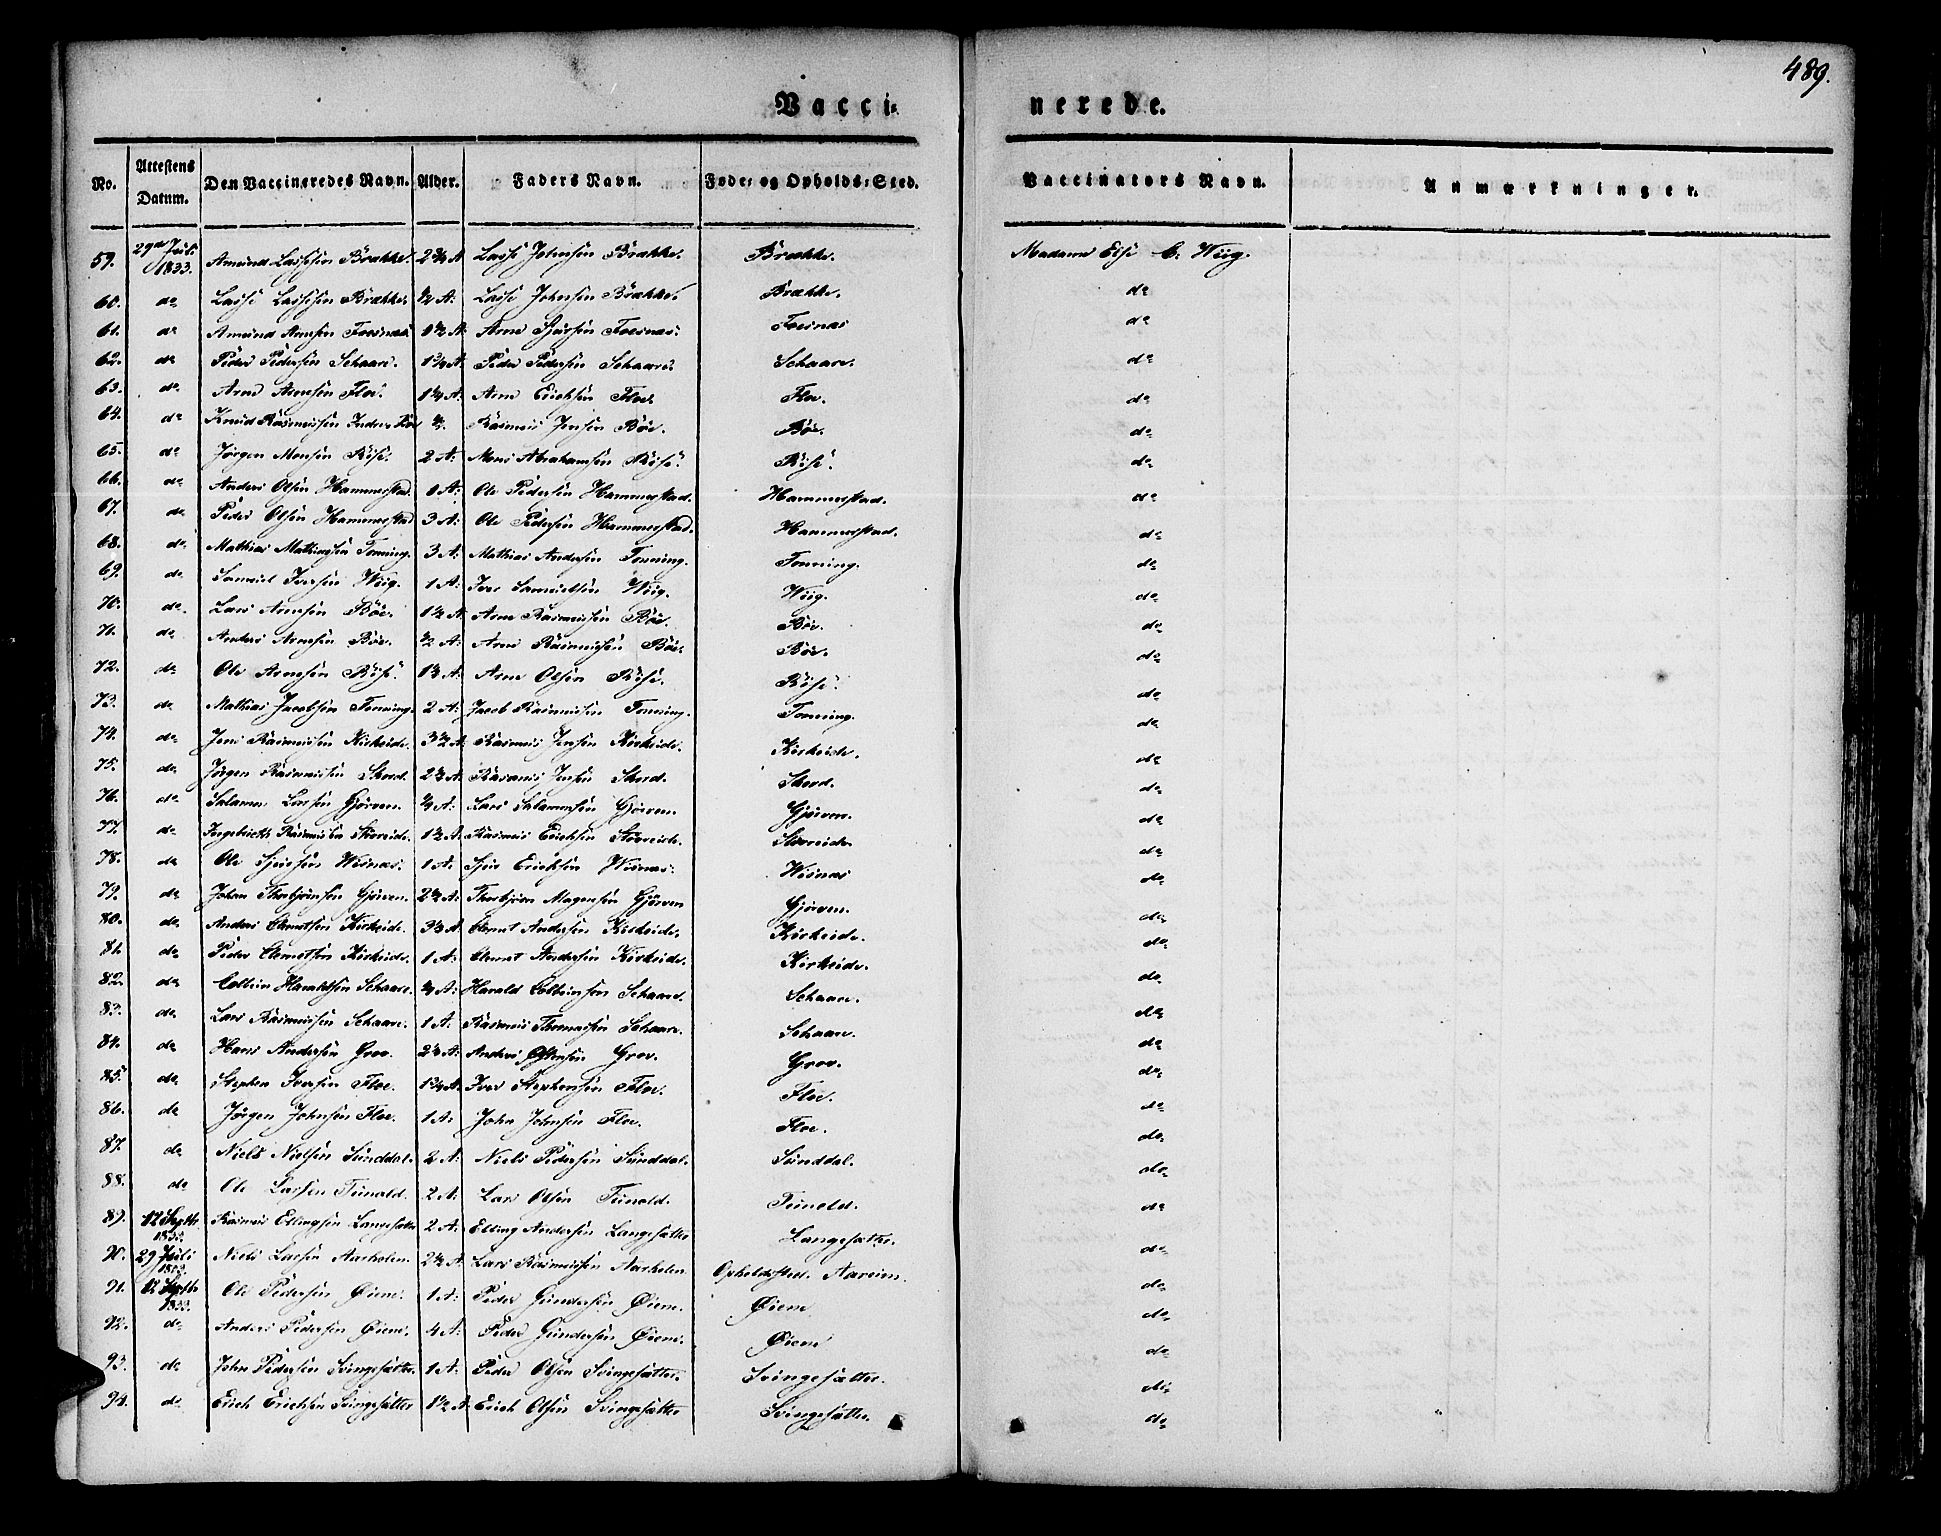 489.
Vacci- nerede.
No. Attestens Datum. Den Vaccineredes Navn. Alder. Faders Navn. Føde- og Opholds-Sted. Vaccinators Navn. Anmærkninger.
59. 29de Juli 1833. Amund Lassesen Brække. 2 3/4 A Lasse Johnsen Brække. Brække. Madame Else C. Wiig.
60. do Lasse Lassesen Brække 1/2 A: Lasse Johnsen Brække. Brække. do
61. do Amund Arnesen Foesnæs 1 1/2 A: Arne Sjursen Foesnæs: Foesnæs do
62. do Peder Pedersen Schaare. 1 3/4 A: Peder Pedersen Schaare. Schaare. do
63. do Arne Arnesen Floe. 1 1/4 A: Arne Erichsen Floe. Floe. do
64. do Knud Rasmussen Böe Rasmus Jensen Böe. Böe. do
65. do Jørgen Monsen Röse. 2 A: Mons Abrahamsen Röse. Röse. do
66. do Anders Olsen Hammerstad. 1 A: Ole Pedersen Hammerstad. Hammerstad. do
67. do Peder Olsen Hammerstad 3 A: Ole Pedersen Hammerstad. Hammerstad. do
68. do Mathias Mathiassen Tonning. 3 A: Mathias Andersen Tonning. Tonning. do
69. do Samuel Iversen Wiig. 1 A: Iver Samuelsen Wiig. Wiig. do
70. do Lars Arnesen Böe. 1 1/2 A Arne Rasmussen Böe. Böe. do
71. do Anders Arnesen Böe. 1/2 A: Arne Rasmussen Böe. Böe. do
72. do Ole Arnesen Röse. 1 1/2 A: Arne Olsen Röse. Röse. do
73. do Mathias Jacobsen Tonning. 2 A: Jacob Rasmussen Tonning. Tonning. do
74. do Jens Rasmussen Kirkeide. 3 1/2 A: Rasmus Jensen Kirkeide. Kirkeide. do
75. do Jörgen Rasmussen Skord. 2 1/2 A Rasmus Jensen Skord. Skord. do
76. do Salamon Larsen Gjörven. 3/4 A: Lars Salamonsen Gjörven. Gjörven. do
77. do Ingebrigt Rasmussen Störeide. 1 1/2 A: Rasmus Erichsen Störeide. Störeide do
78. do Ole Sjursen Wisnæs: 1 A: Sjur Erichsen Wisnæs: Wisnæs do
79. do Johan Thorbjörnsen Gjörven. 2 1/2 A: Thorbjörn Mogensen Gjörven Gjörven. do
80. do Anders Clemetsen Kirkeide. 3 1/2 A Clemet Andersen Kirkeide. Kirkeide. do
81. do Peder Clemetsen Kirkeide. 1 A: Clemet Andersen Kirkeide. Kirkeide. do
82. do Colbein Haraldsen Schaare. 3/4 A: Harald Colbeinsen Schaare. Schaare. do
83. do Lars Rasmussen Schaare. 1 A: Rasmus Thomassen Schaare. Schaare. do
84. do Hans Andersen Grov. 2 1/2 A: Anders Grov. Grov. do
85. do Stephen Iversen Floe. 1 3/4 A: Iver Stephensen Floe. Floe. do
86. do Jörgen Johnsen Floe. 1 A: John Johnsen Floe. Floe. do
87. do Niels Nielsen Sunddal. 2 A: Niels Pedersen Sunddal. Sunddal. do
88. do Ole Larsen Tunold. 2 A: Lars Olsen Tunold. Tunold. do
89. 12 Septb 1833. Rasmus Ellingsen Langesæter 2 A: Elling Andersen Langesæter Langesæter. do
90. 29 Juli 1833. Niels Larsen Aarholen. 2 1/2 A. Lars Rasmussen Aarholen. Opholdssted. Aareim. do
91. 12 Septb 1833. Ole Pedersen Øiene. 1 A: Peder Gundersen Øiene. Øiene do
92. do Anders Pedersen Øiene. 4 A: Peder Gundersen Øiene. Øiene do
93. do John Pedersen Svingesæter. 1 A: Peder Olsen Svingesæter. Svingesæter. do
94. do Erich Erichsen Svingesæter 1 1/2 A Erich Olsen Svingesæter Svingesæter. do